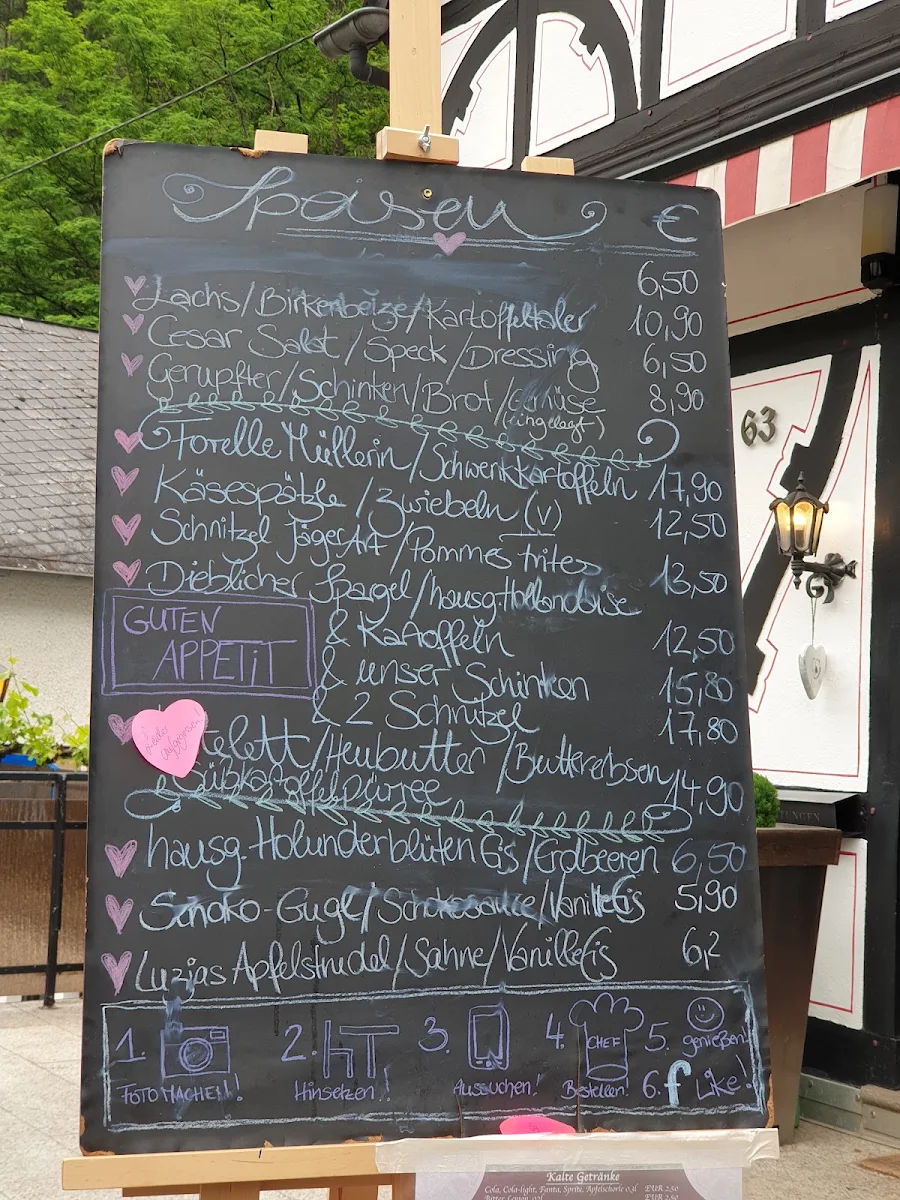 Speisen €
6,50
Lachs/Birkenbeize/Kartoffeltaler 10,90
Cesar Salat/Speck/Dressing 6,50
Gerupfter/Schinken/Brot/Gemüse 8,90
(eingelegt)
Forelle Müllerin/Schwenkkartoffeln 17,90
Käsespätzle/Zwiebeln (v) 12,50
Schnitzel Jäger Art/Pommes frites 13,50
Dieblicher Spargel/hausg. Hollandaise
& Kartoffeln 12,50
& unser Schinken 15,80
& 2 Schnitzel 17,80
GUTEN
APPETiT
Leider
telett/Heubutter/Buttererbsen 14,90
Süßkartoffelpürree
hausg. Holunderblüten Eis/Erdbeeren 6,50
Schoko-Gugl/Schokosauce/VanilleEis 5,90
Luzias Apfelstrudel/Sahne/VanilleEis 6,2
1. FOTO MACHEN!
2. Hinsetzen!
3. Aussuchen!
4. CHEF Bestellen!
5. genießen!
6. f Like!
63
Kalte Getränke
Cola, Cola-light, Fanta, Sprite, Apfelschorle 0,3l EUR 2,50